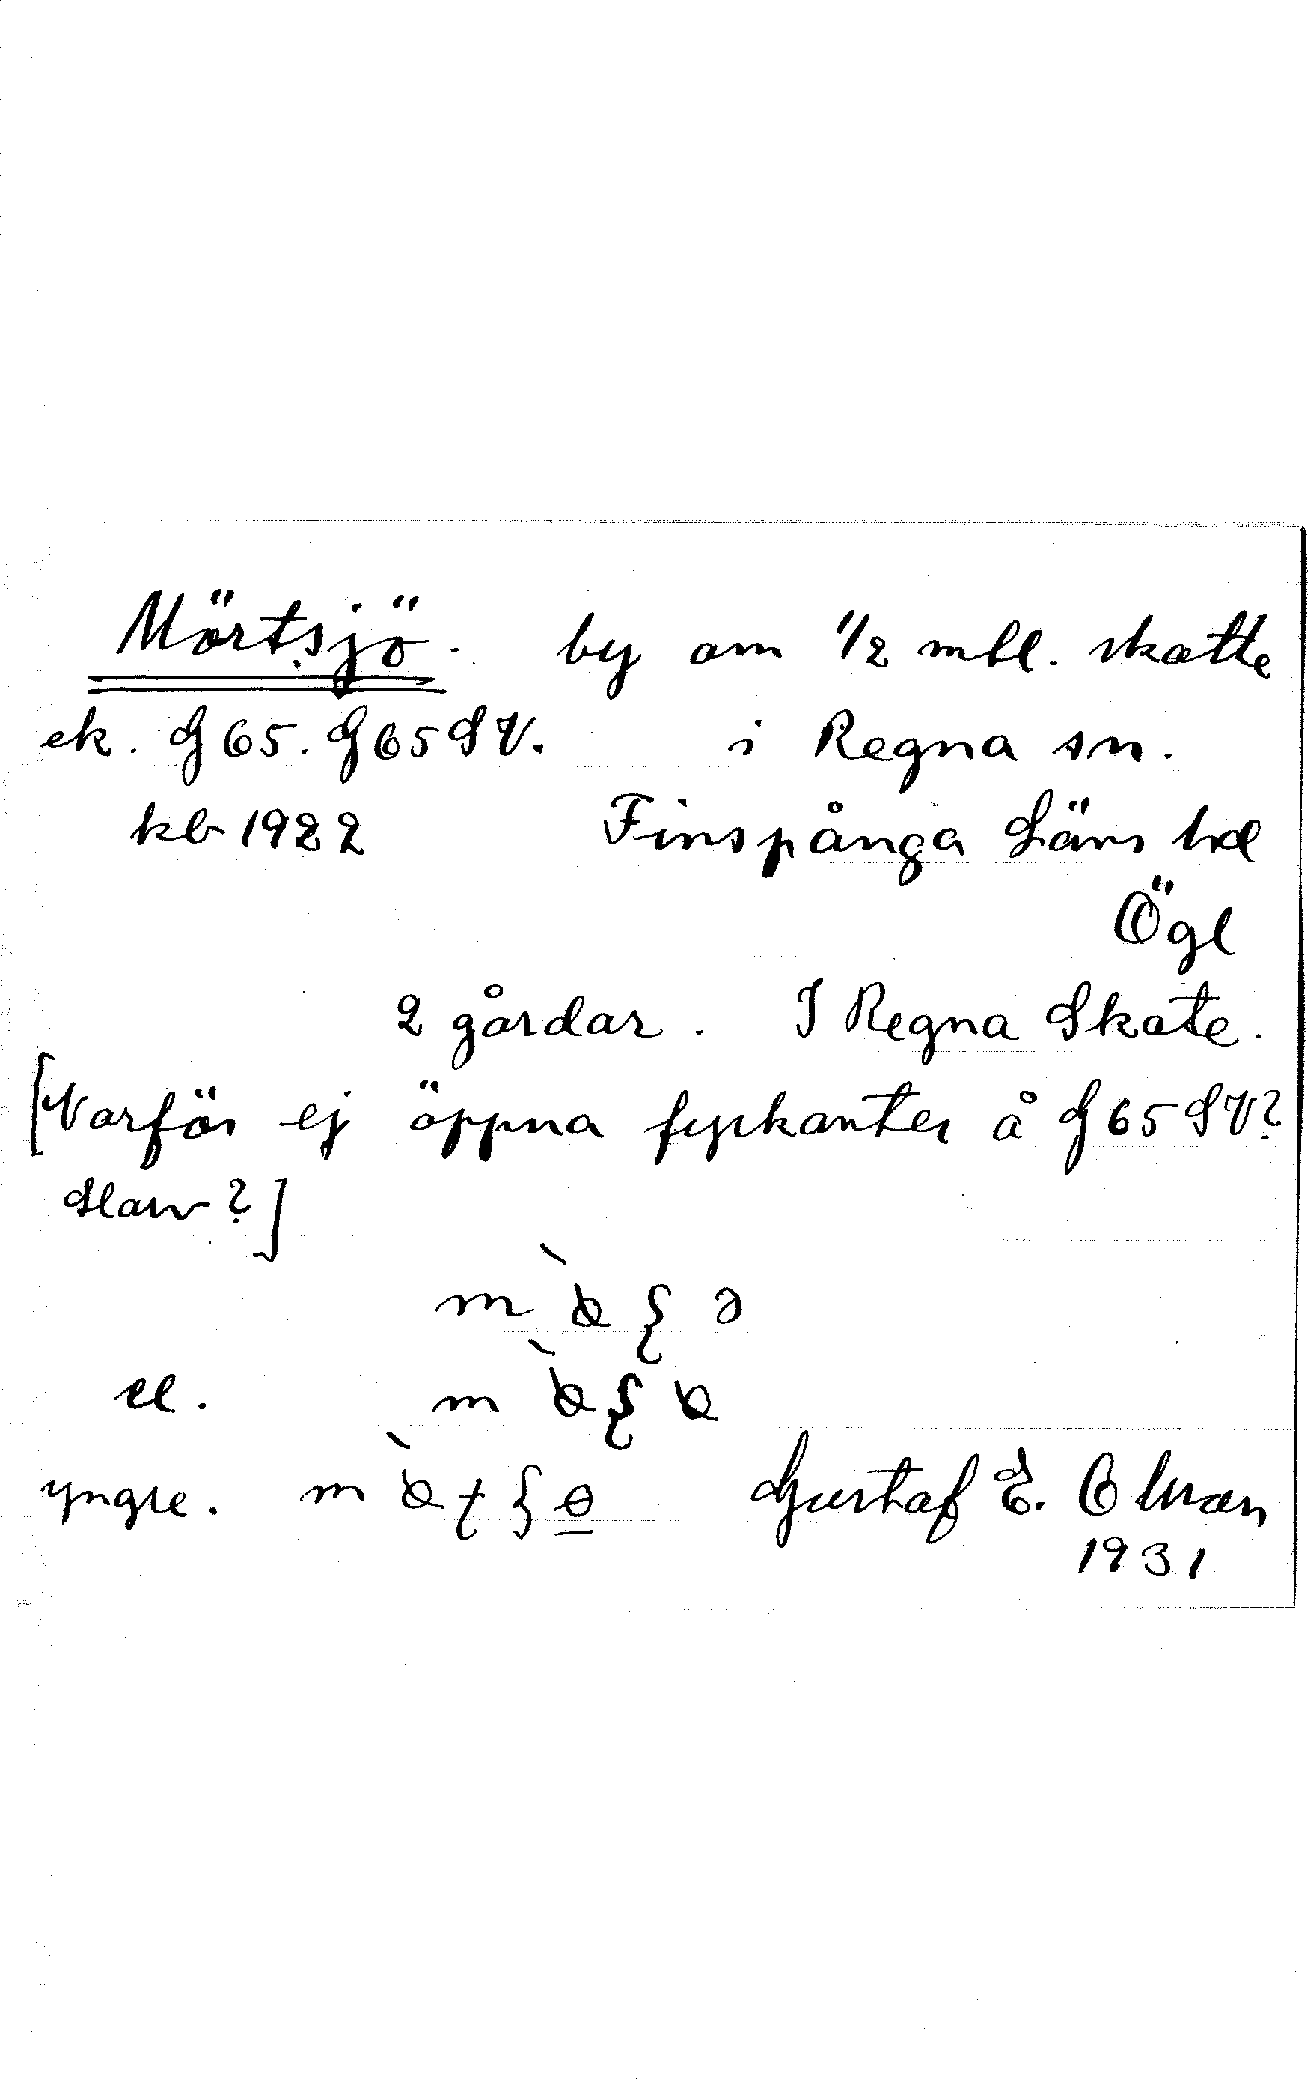 Mörtsjö. by om 1/2 mtl. skatte
ek. G 65. G 65 SV. i Regna sn.
kb 1922 Finspånga Läns hd
Ögl
2 gårdar. I Regna Skate.
[Varför ej öppna fyrkanter å G 65 SV?
Slarv?]
el.
yngre. Gustaf E. Olman
1931